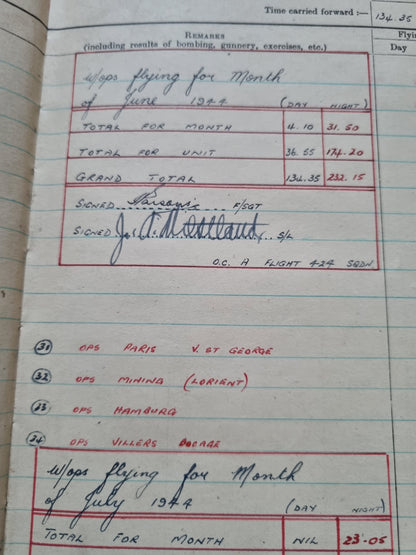 Time carried forward :— 134.35
REMARKS
(including results of bombing, gunnery, exercises, etc.)
Flyi
Day
W/ops flying for Month
of June 1944 (DAY NIGHT)
TOTAL FOR MONTH 4.10 31.50
TOTAL FOR UNIT 36.55 174.20
GRAND TOTAL 134.35 232.15
SIGNED Parsons F/SGT
SIGNED S/L
O.C. A FLIGHT 424 SQDN
31 OPS PARIS V. ST GEORGE
32 OPS MINING (LORIENT)
33 OPS HAMBURG
34 OPS VILLERS BOCAGE
W/ops flying for Month
of July 1944 (DAY NIGHT)
TOTAL FOR MONTH NIL 23.05